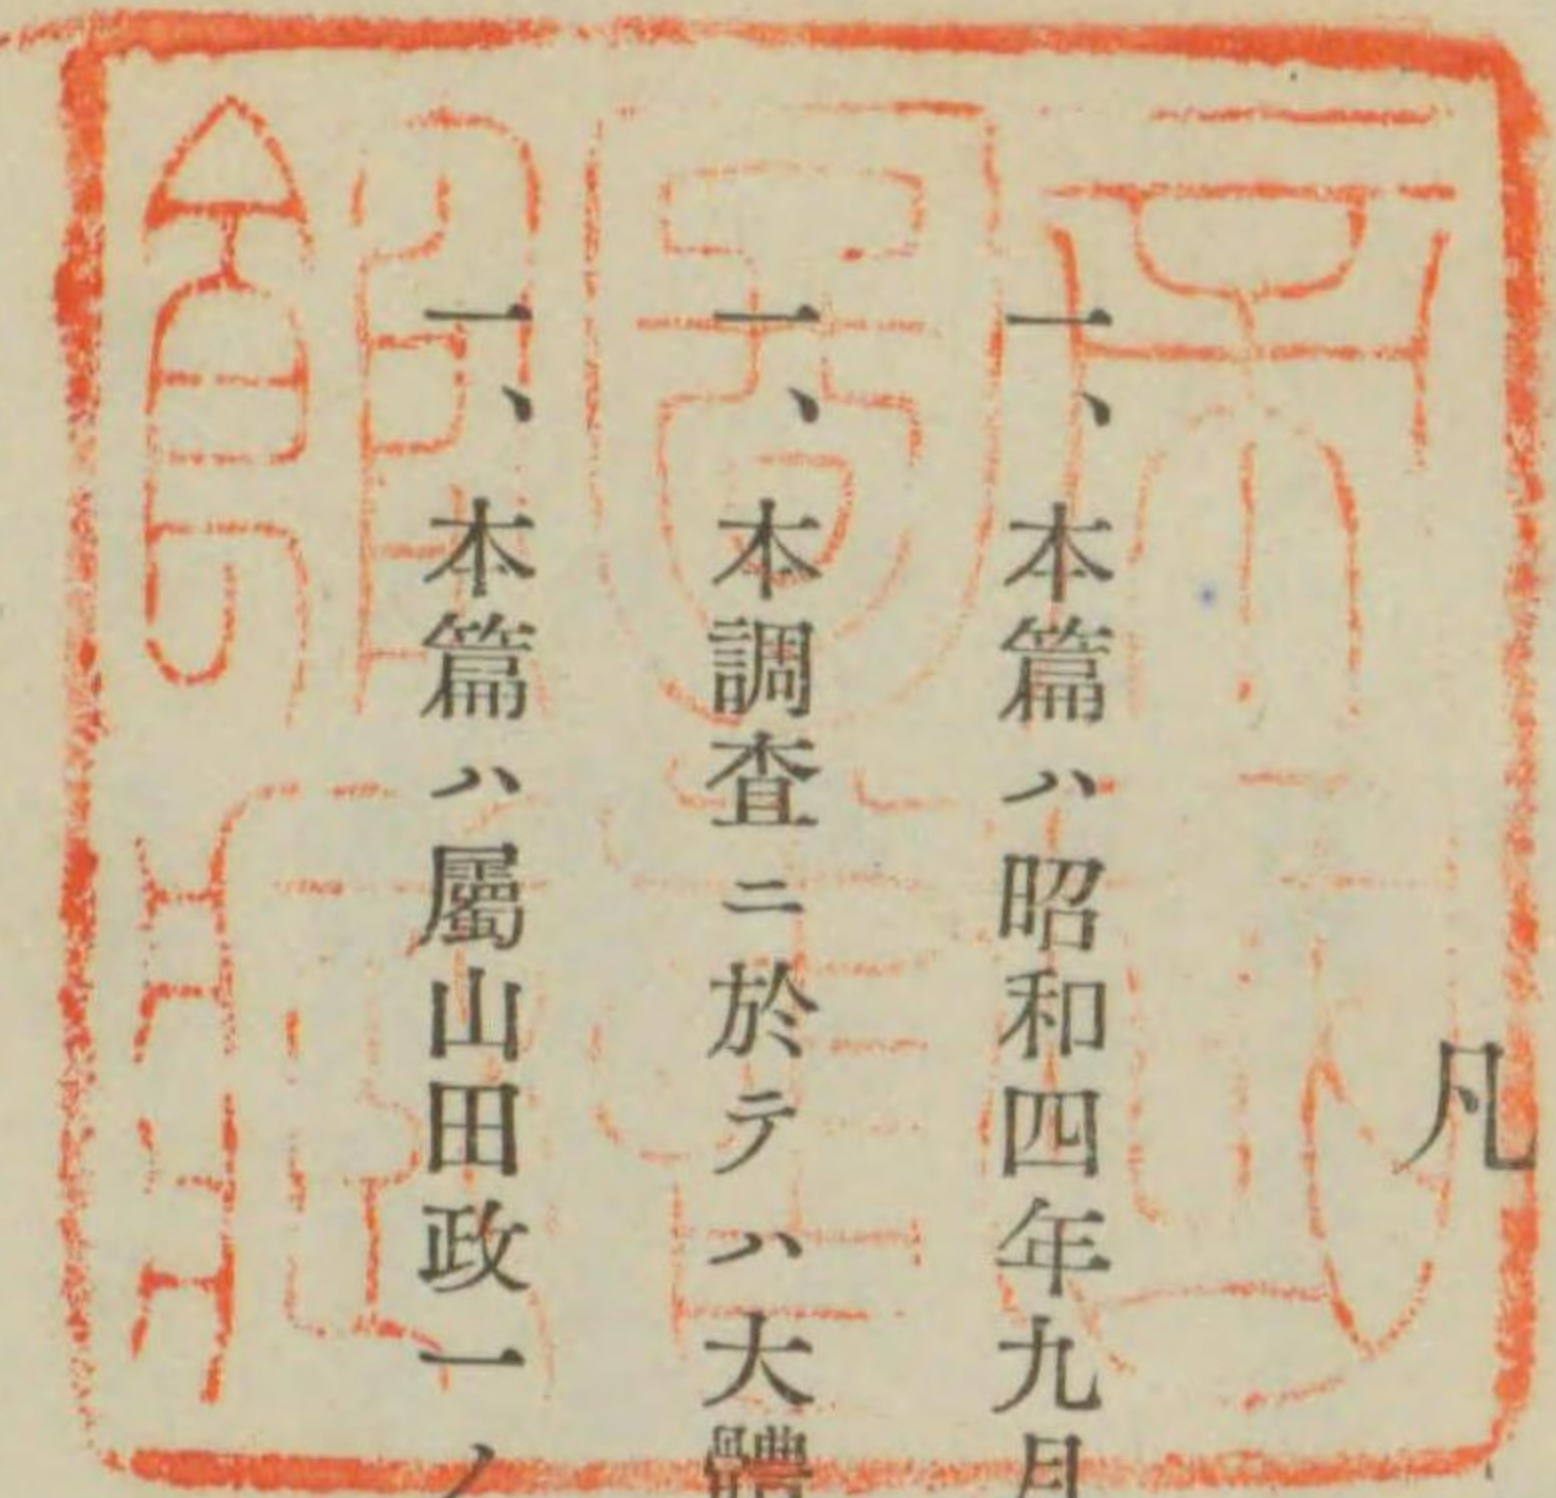 凡
一、本篇ハ昭和四年九月
一、本調査ニ於テハ大體
一、本篇ハ屬山田政一ノ